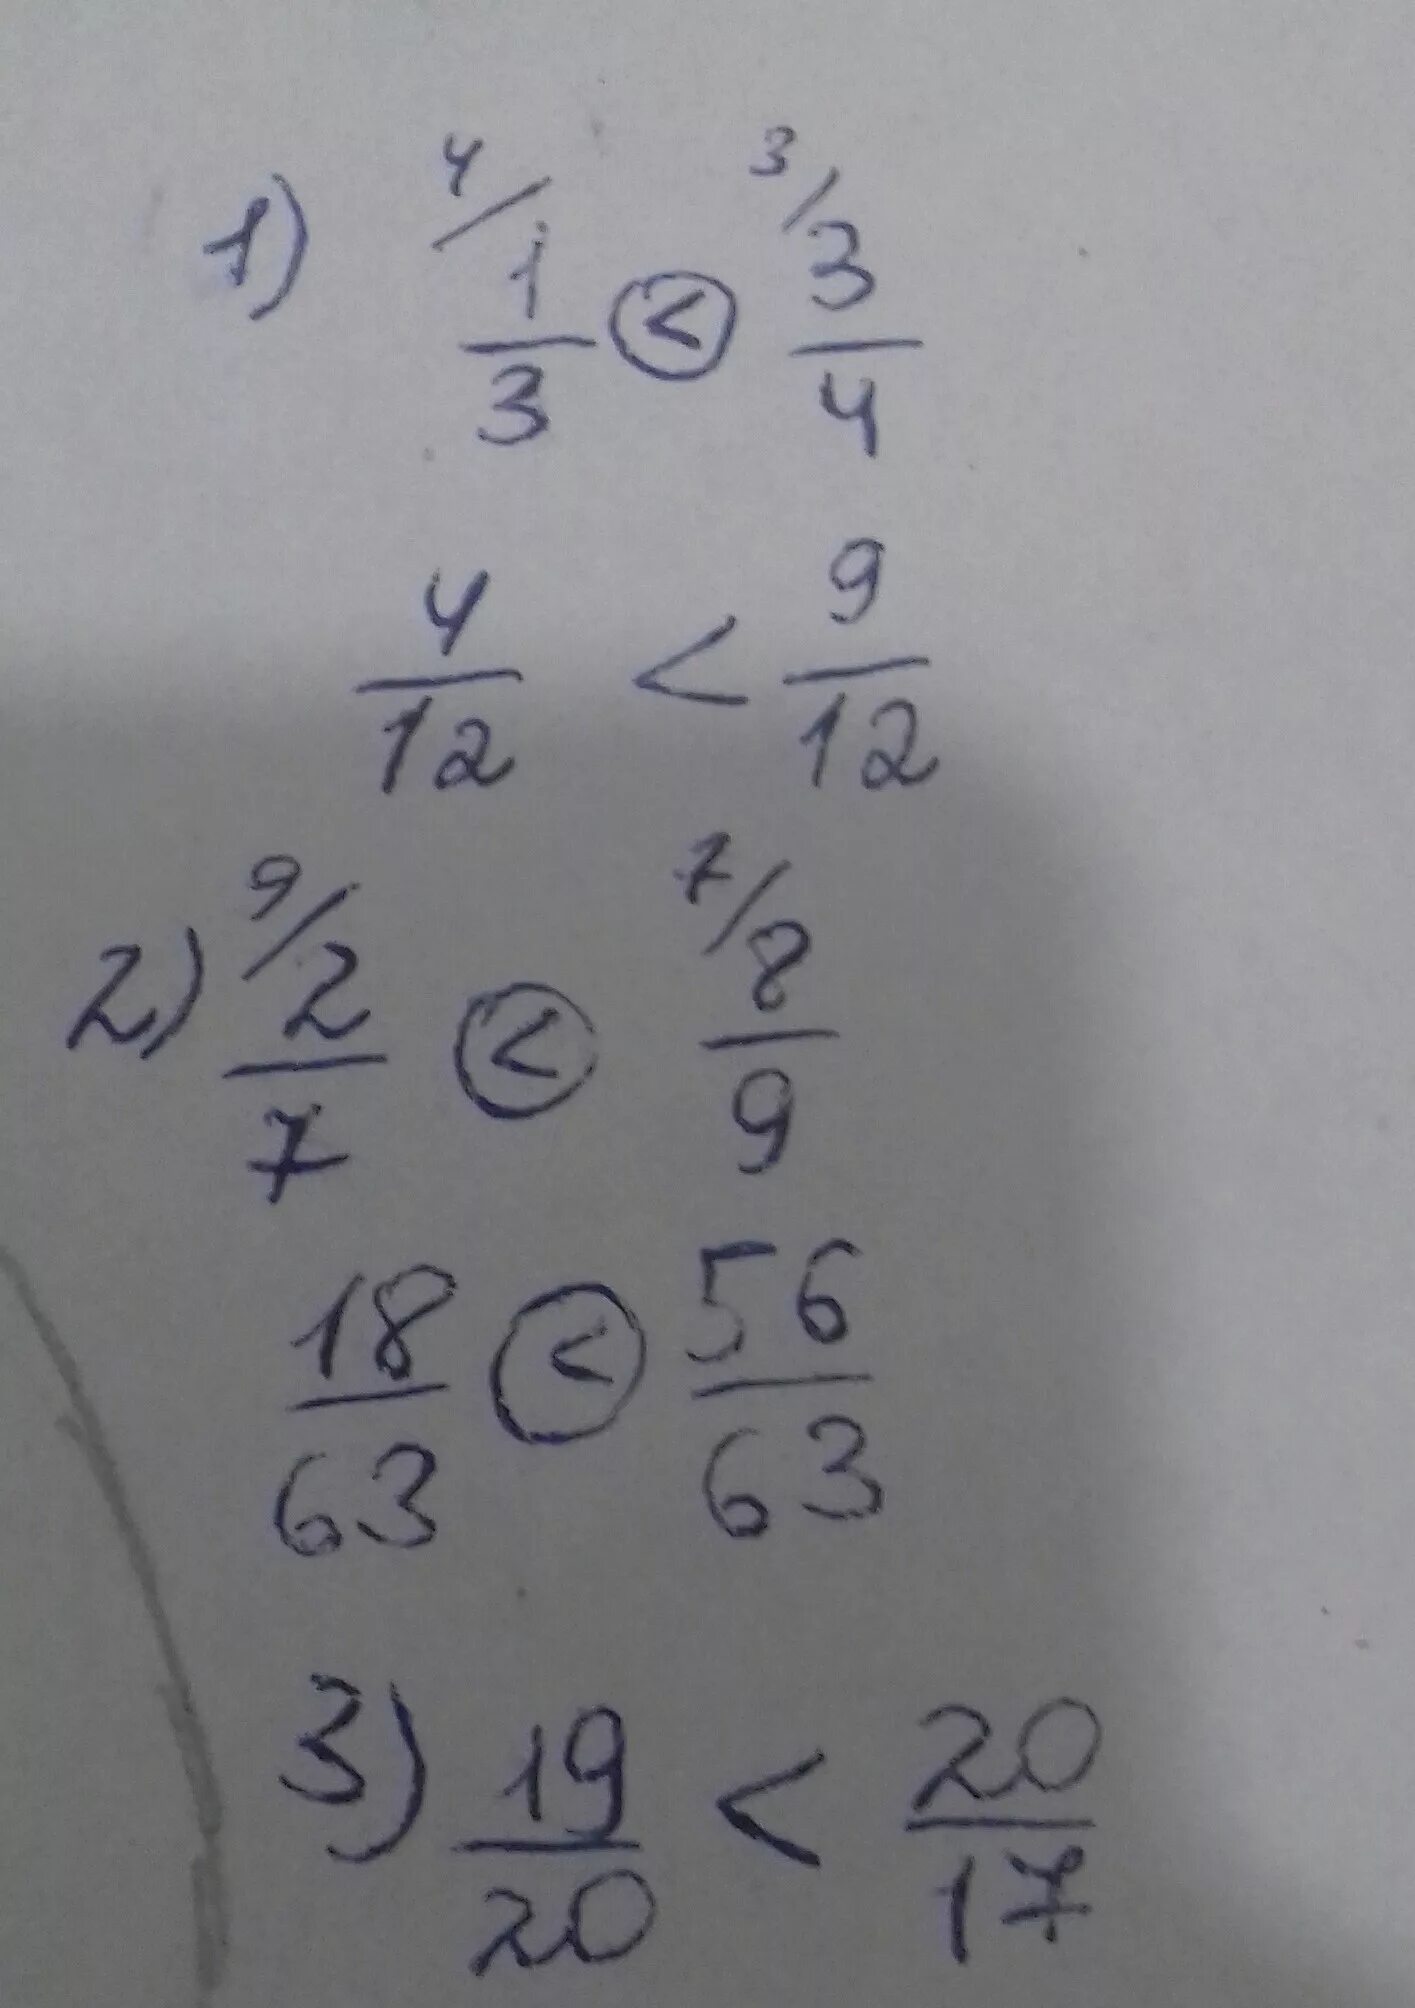 1) ⁴/ 1/3 < ³/ 3/4
4/12 < 9/12
2) ⁹/ 2/7 < ⁷/ 8/9
18/63 < 56/63
3) 19/20 < 20/17